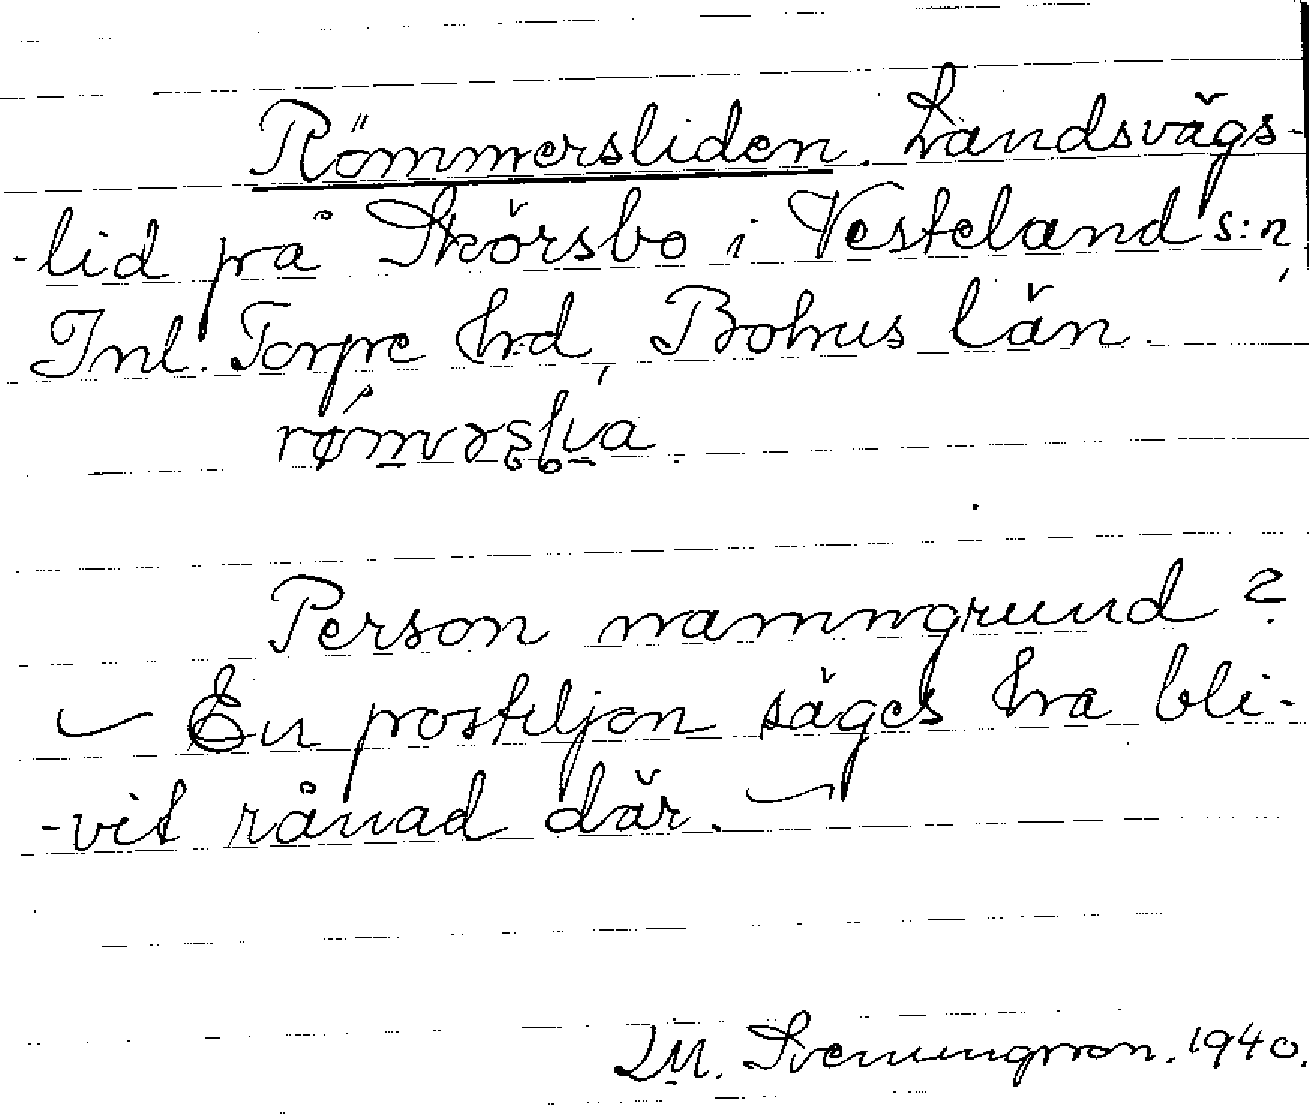 Römmersliden. Landsvägs-
-lid på Skörsbo i Vesteland s:n,
Inl. Torpe hrd, Bohus län.
Person namngrund?
– En postiljon säges ha bli-
-vit rånad där. –
M. Svenungsson. 1940.